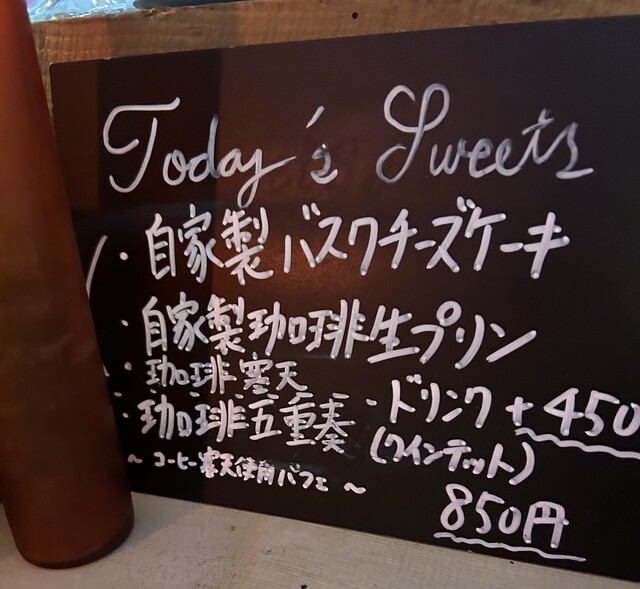 Today's Sweets
・自家製バスクチーズケーキ
・自家製珈琲生プリン
・珈琲寒天
・珈琲五重奏
(クインテット)
~コーヒー寒天使用パフェ~
・ドリンク+450
850円